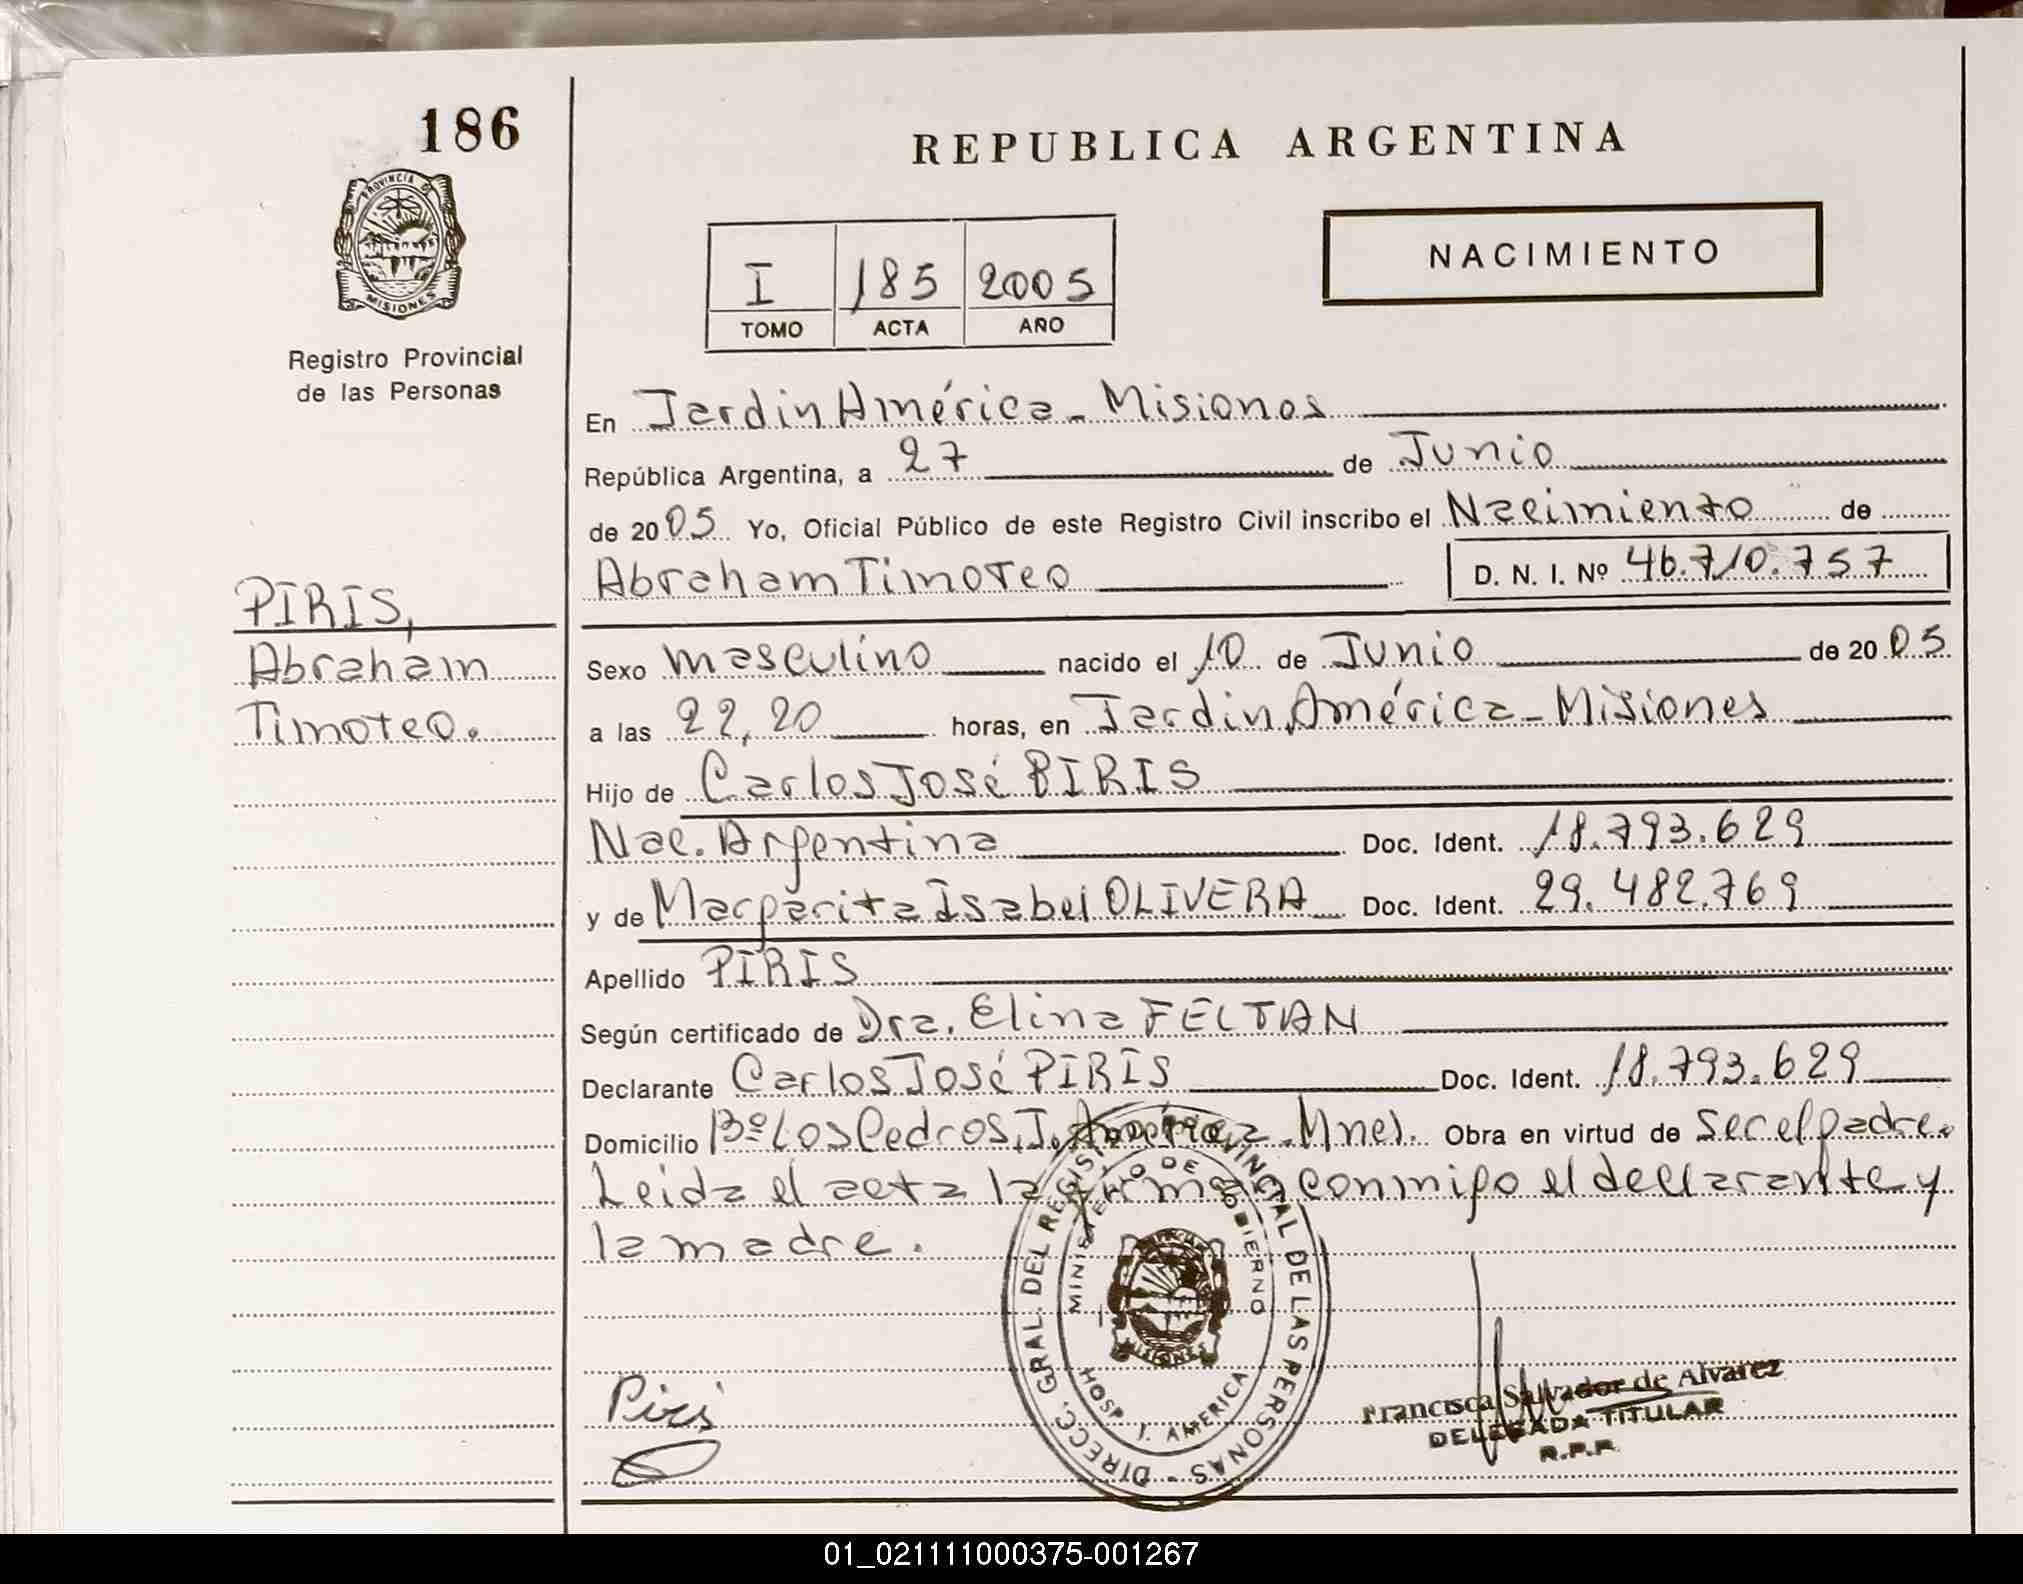 186
REPUBLICA ARGENTINA
PROVINCIA DE
MISIONES
NACIMIENTO
I 185 2005
TOMO ACTA AÑO
Registro Provincial
de las Personas
En Jardin América - Misiones
República Argentina, a 27 de Junio
de 2005 Yo, Oficial Público de este Registro Civil inscribo el Nacimiento de
Abraham Timoteo D. N. I. Nº 46.710.757
PIRIS,
Abraham
Timoteo.
Sexo masculino nacido el 10 de Junio de 2005
a las 22,20 horas, en Jardin América - Misiones
Hijo de Carlos José PIRIS
Nac. Argentina Doc. Ident. 18.793.629
y de Margarita Isabel OLIVERA Doc. Ident. 29.482.769
Apellido PIRIS
Según certificado de Dra. Elina FELTAN
Declarante Carlos José PIRIS Doc. Ident. 18.793.629
Domicilio Bº Los Cedros, J. América - Mnes. Obra en virtud de ser el padre.
Leida el acta la firman conmigo el declarante y
la madre.
DIRECC. GRAL. DEL REGISTRO PROVINCIAL DE LAS PERSONAS -
MINISTERIO DE GOBIERNO
MISIONES
HOSP. J. AMERICA
Piris
Francisca Salvador de Alvarez
DELEGADA TITULAR
R.P.P.
01_021111000375-001267